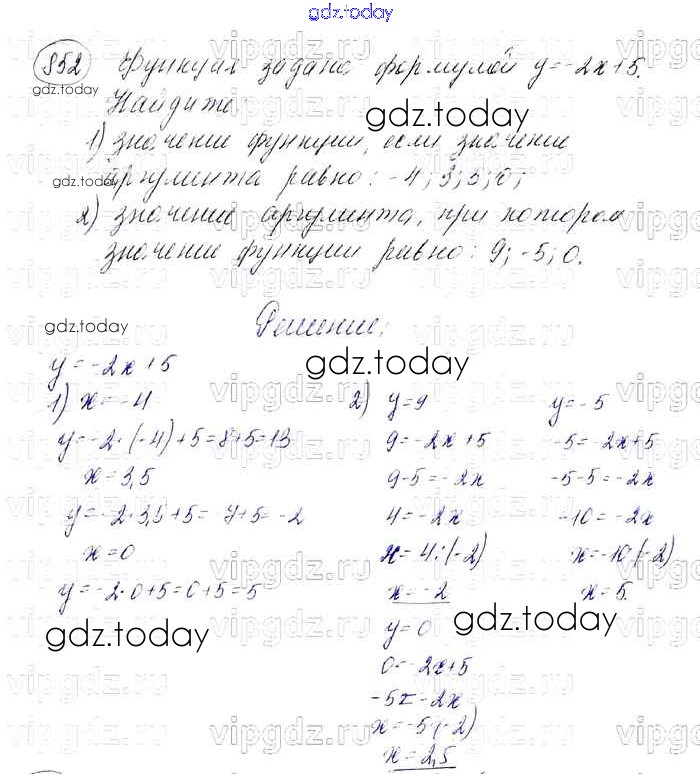 gdz.today
852 Функция задана формулой y=-2x+5.
gdz.today
Найдите
gdz.today
1) значение функции, если значение
gdz.today
аргумента равно: -4; 3,5; 0;
2) значение аргумента, при котором
значение функции равно: 9; -5; 0.
Решение:
gdz.today
gdz.today
y=-2x+5
1) x=-4
y=-2·(-4)+5=8+5=13
x=3,5
y=-2·3,5+5=-7+5=-2
x=0
y=-2·0+5=0+5=5
gdz.today
2) y=9
9=-2x+5
9-5=-2x
4=-2x
x=4:(-2)
x=-2
y=-5
-5=-2x+5
-5-5=-2x
-10=-2x
x=-10:(-2)
x=5.
gdz.today
y=0
0=-2x+5
-5=-2x
x=-5:(-2)
x=2,5
vipgdz.ru